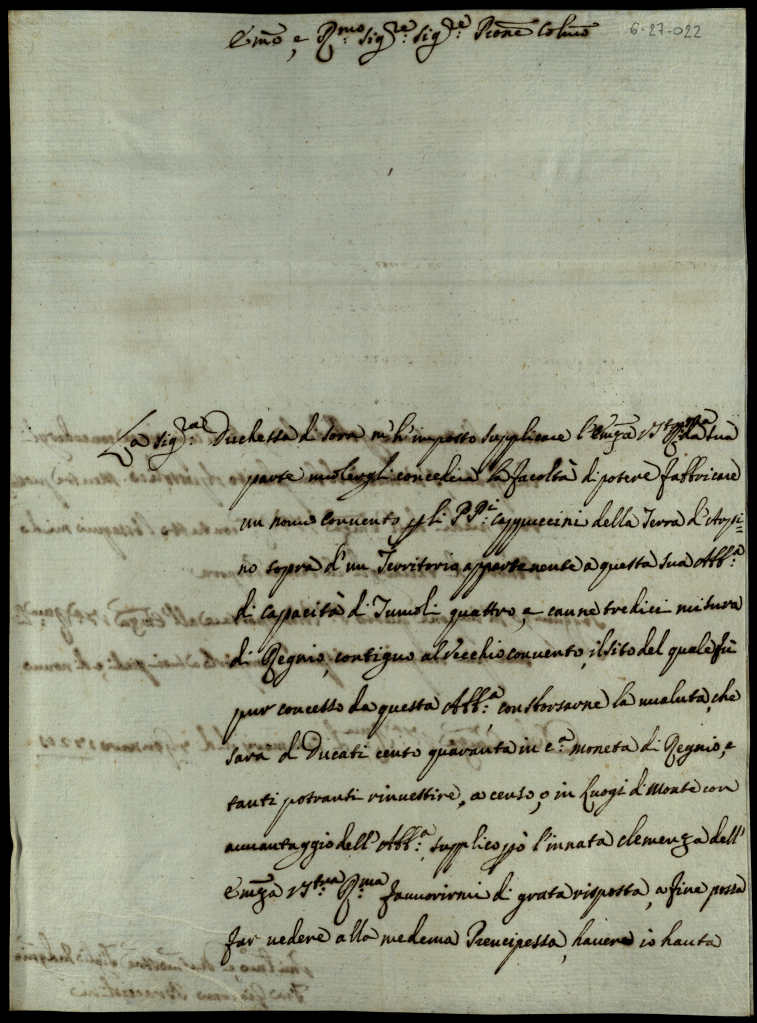 Emo, e Rmo: Sigre: Sigre: Prone Colmo
6-27-022
La Sigra: Duchessa di Sora m'hà imposto supplicare l'Emza Vtra Rma da sua
parte uolergli concedere la facoltà di potere fabbricare
un nouo conuento p li PPi: Cappuccini della Terra d'Arpi=
no sopra d'un Territorio appartenente a questa sua Abba:
di capacità di Tumoli quattro, e canne tredici misura
di Regnio, contiguo al Vecchio conuento, il sito del quale fù
pur concesso da questa Abba:, con sborsarne la ualuta, che
sarà di Ducati cento quaranta in ca: moneta di Regnio, e
tanti potranti rinuestire, a censo, o in Luogi di Monte con
auuantaggio dell'Abba:, supplico pò l'innata clemenza dell'
Emza Vtra: Rma fauorirmi di grata risposta, a fine possa
far uedere alla medema Prencipessa, hauere io hauta